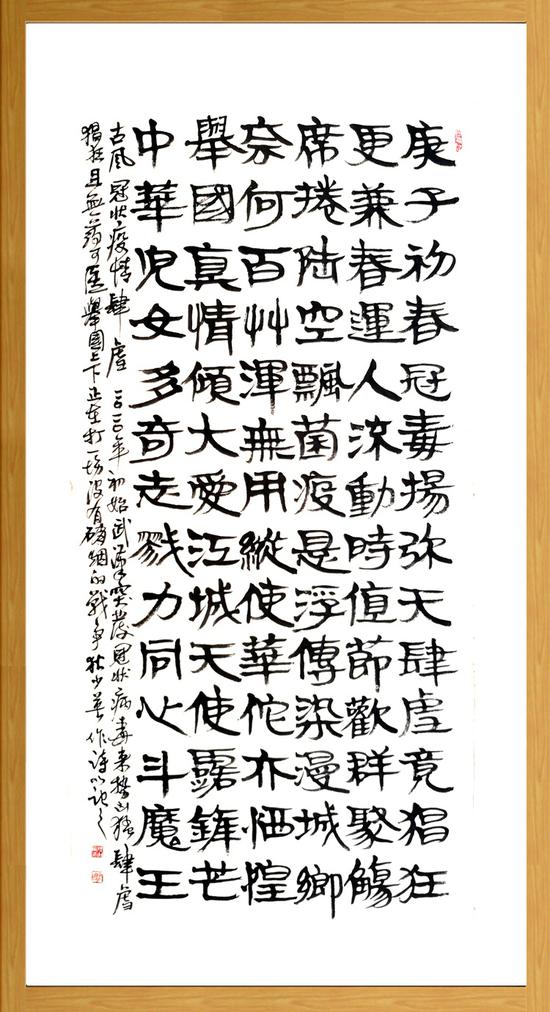 庚子初春冠毒揚弥天肆虐竟猖狂
更兼春運人流動時值節歡群聚觴
席捲陸空飄菌疫是浮傳染漫城鄉
奈何百艸渾無用縱使華佗亦恓惶
舉國真情傾大愛江城天使露鋒芒
中華兒女多奇志戮力同心斗魔王
古風 冠狀疫情肆虐 二〇二〇年初始武漢突發冠狀病毒來勢凶猛肆虐
猖狂且無药可医舉國上下正在打一场没有硝烟的戰争 作诗以記之